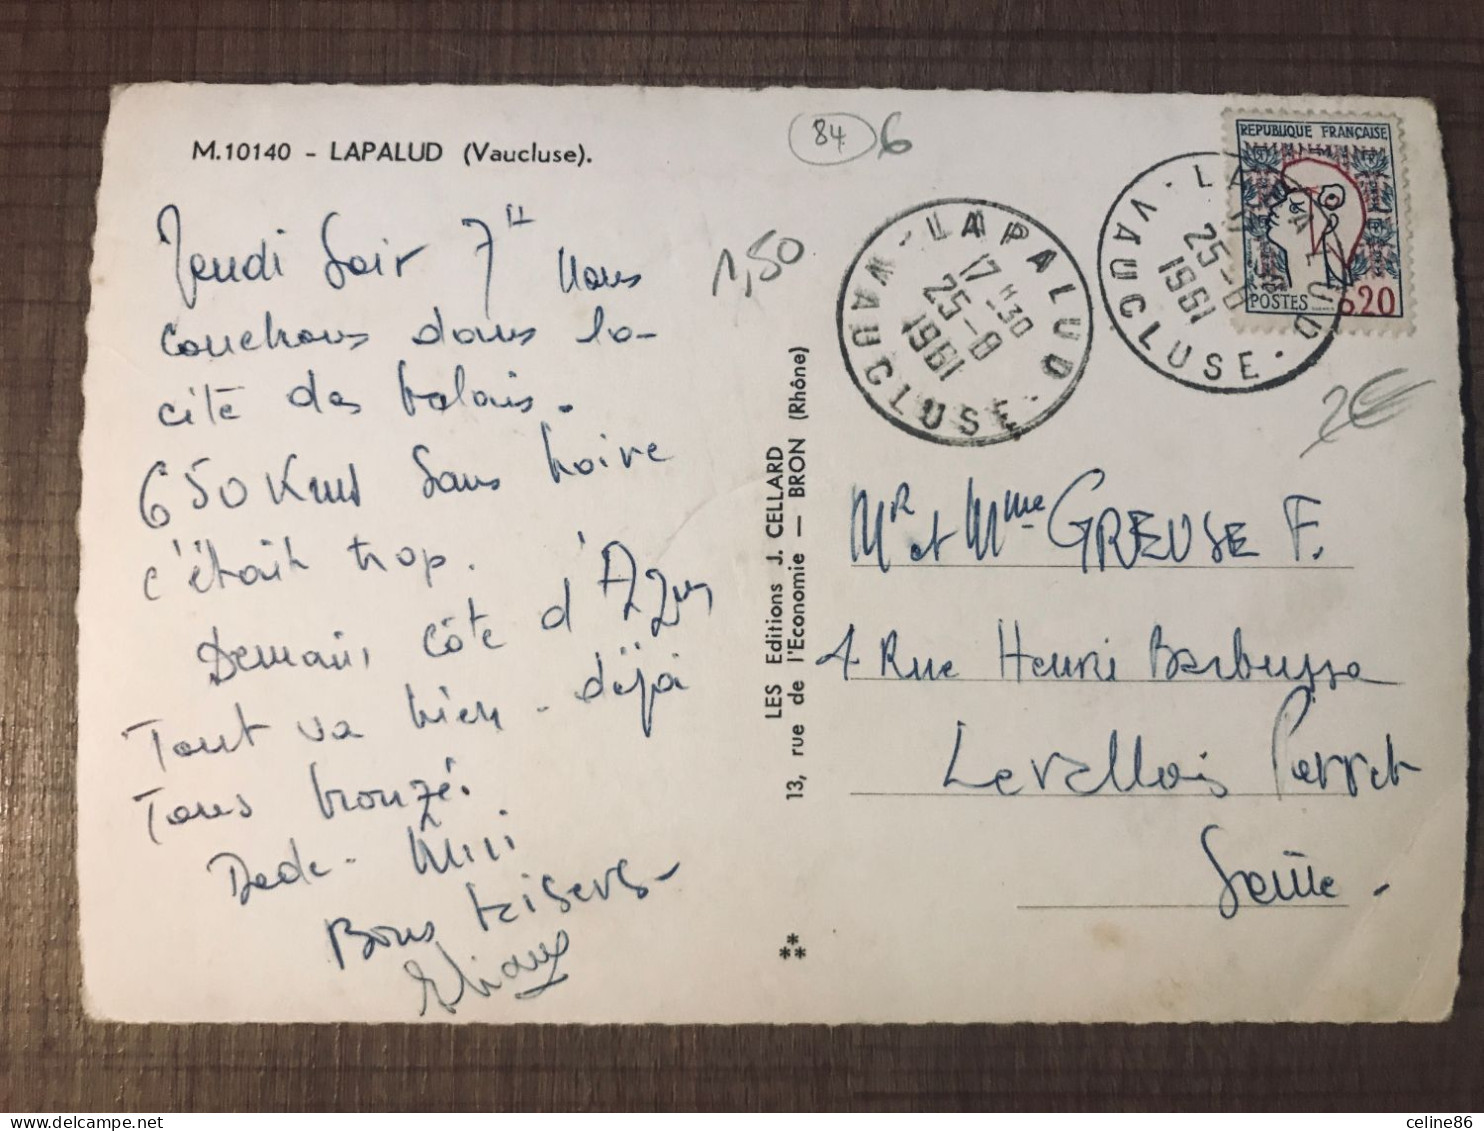 M.10140 - LAPALUD (Vaucluse).
84 6
1,50
Jeudi Soir 7H nous
couchons dans la
cité des balais.
650 Kms sans boire
c'était trop.
Demain, côte d'Azur
Tout va bien - déjà
Tous bronzé.
Dede - Mimi
Bons baisers
LES Editions J. CELLARD
13, rue de l'Economie — BRON (Rhône)
LAPALUD
17H30
25-8
1961
VAUCLUSE
LAPALUD
17
25-8
1961
VAUCLUSE
REPUBLIQUE FRANÇAISE
POSTES 0,20
2€
Mr et Mme GREUSE F.
4 Rue Henri Barbusse
Levallois Perret
Seine -
celine86